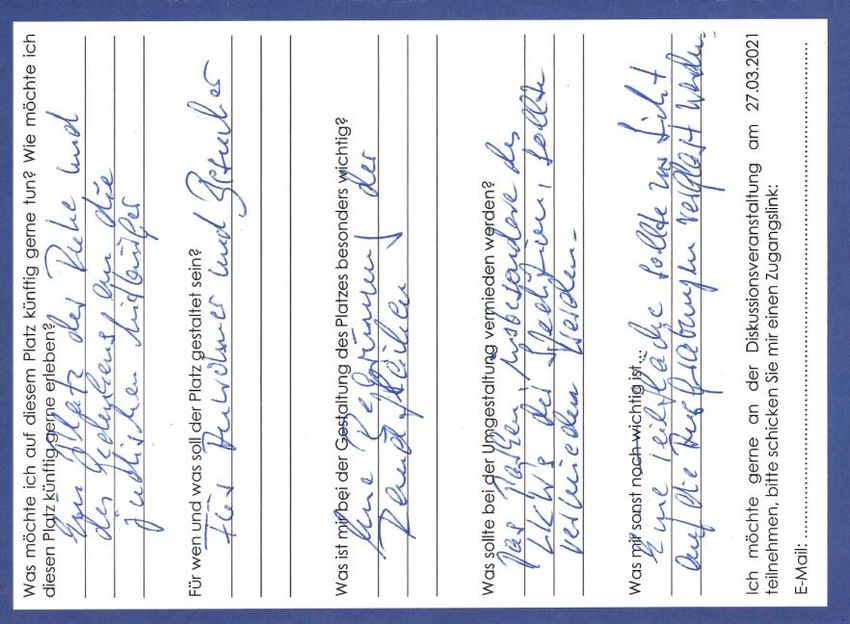 Was möchte ich auf diesem Platz künftig gerne tun? Wie möchte ich
diesen Platz künftig gerne erleben?
Ein Platz der Ruhe und
des Gedenkens an die
jüdischen Mitbürger
Für wen und was soll der Platz gestaltet sein?
Für Bewohner und Besucher
Was ist mir bei der Gestaltung des Platzes besonders wichtig?
Eine Begrünung der
Randflächen
Was sollte bei der Umgestaltung vermieden werden?
Das Parken, insbesondere des
LKWs der Spedition, sollte
vermieden werden.
Was mir sonst noch wichtig ist...
Eine Teilfläche sollte zur Sicht
auf die Ausgrabungen verglast werden.
Ich möchte gerne an der Diskussionsveranstaltung am 27.03.2021
teilnehmen, bitte schicken Sie mir einen Zugangslink:
E-Mail: